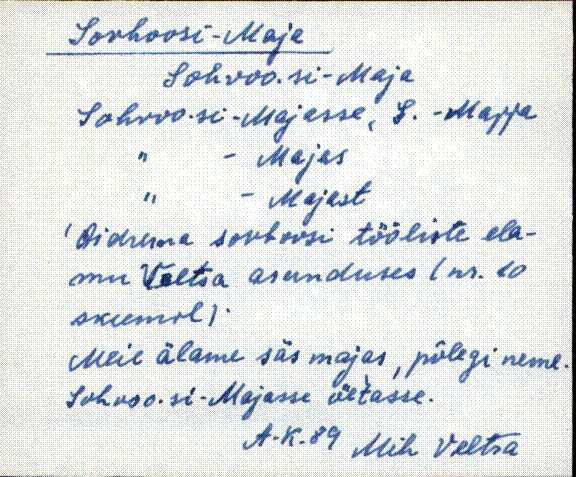 Sovhoosi-Maja
Sohvoo.si-Maja
Sohvoo.si-Majasse, S. -Majja
" - Majas
" - Majast
Oidrema sovhoosi tööliste ela-
mu Veltsa asunduses (nr. 10
skeemil).
Meie älame säs majas, põlegi neme.
Sohvoo.si-Majasse üetasse.
A.K. 89 Mih Veltsa